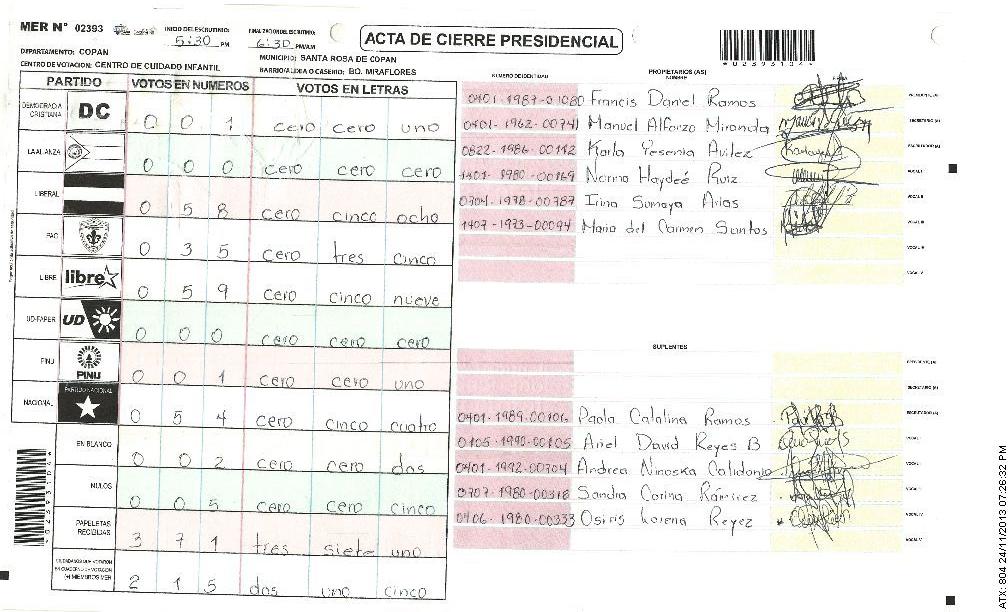 MER N° 02393
INICIO DEL ESCRUTINIO: 5:30 PM
FINALIZACION DEL ESCRUTINIO: 6:30 PM/AM
ACTA DE CIERRE PRESIDENCIAL
DEPARTAMENTO: COPAN
MUNICIPIO: SANTA ROSA DE COPAN
CENTRO DE VOTACION: CENTRO DE CUIDADO INFANTIL
BARRIO/ALDEA O CASERIO: BO. MIRAFLORES
PARTIDO VOTOS EN NUMEROS VOTOS EN LETRAS
DEMOCRACIA CRISTIANA DC 0 0 1 cero cero uno
LA ALIANZA 0 0 0 cero cero cero
LIBERAL 0 5 8 cero cinco ocho
PAC 0 3 5 cero tres cinco
LIBRE libre 0 5 9 cero cinco nueve
UD-FAPER UD 0 0 0 cero cero cero
PINU PINU 0 0 1 cero cero uno
NACIONAL PARTIDO NACIONAL 0 5 4 cero cinco cuatro
EN BLANCO 0 0 2 cero cero dos
NULOS 0 0 5 cero cero cinco
PAPELETAS RECIBIDAS 3 7 1 tres siete uno
CIUDADANOS QUE VOTARON EN CUADERNO DE VOTACION (+) MIEMBROS MER 2 1 5 dos uno cinco
NUMERO DE IDENTIDAD PROPIETARIOS (AS)
NOMBRE
0401-1987-01080 Francis Daniel Ramos PRESIDENTE (A)
0401-1962-00741 Manuel Alfonzo Miranda SECRETARIO (A)
0822-1986-00112 Karla Yesenia Avilez ESCRUTADOR (A)
1401-1980-00169 Norma Haydeé Ruiz VOCAL I
0704-1978-00787 Irina Sumaya Arias VOCAL II
1407-1973-00094 Maria del Carmen Santos VOCAL III
VOCAL IV
VOCAL V
SUPLENTES
PRESIDENTE (A)
SECRETARIO (A)
0401-1989-00106 Paola Catalina Ramos ESCRUTADOR (A)
0105-1990-00105 Ariel David Reyes B VOCAL I
0401-1992-00704 Andrea Ninoska Calidonio
0707-1980-00318 Sandra Corina Ramirez
0406-1980-00333 Osiris Lorena Reyez VOCAL IV
VOCAL V
023931044
023931044
ATX: 804 24/11/2013 07:26:32 PM